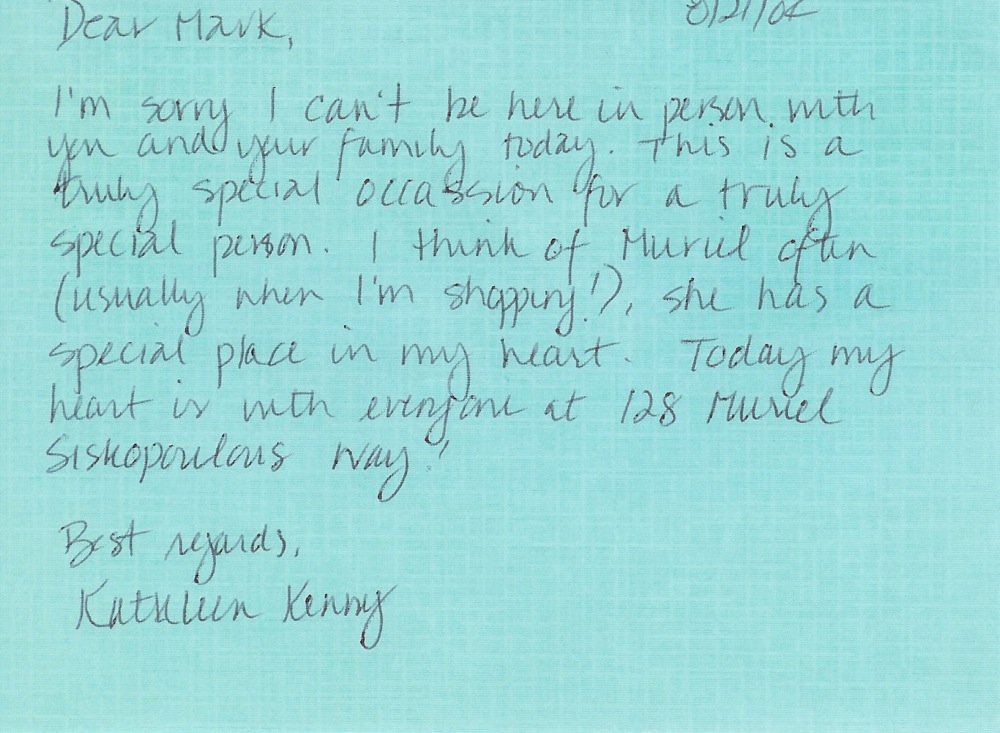 8/21/02
Dear Mark,
I'm sorry I can't be here in person with
you and your family today. This is a
truly special occassion for a truly
special person. I think of Muriel often
(usually when I'm shopping!), she has a
special place in my heart. Today my
heart is with everyone at 128 Muriel
Siskopoulous Way!
Best regards,
Kathleen Kenny